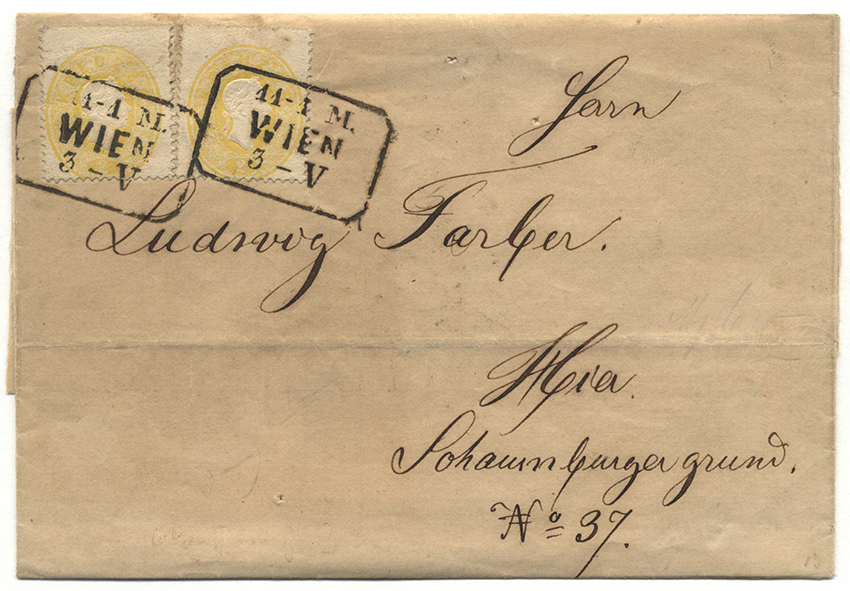 11-1 M.
WIEN
3 - V
11-1 M.
WIEN
3 - V
Herrn
Ludwig Farber.
Hier.
Schaumburgergrund.
No 37.